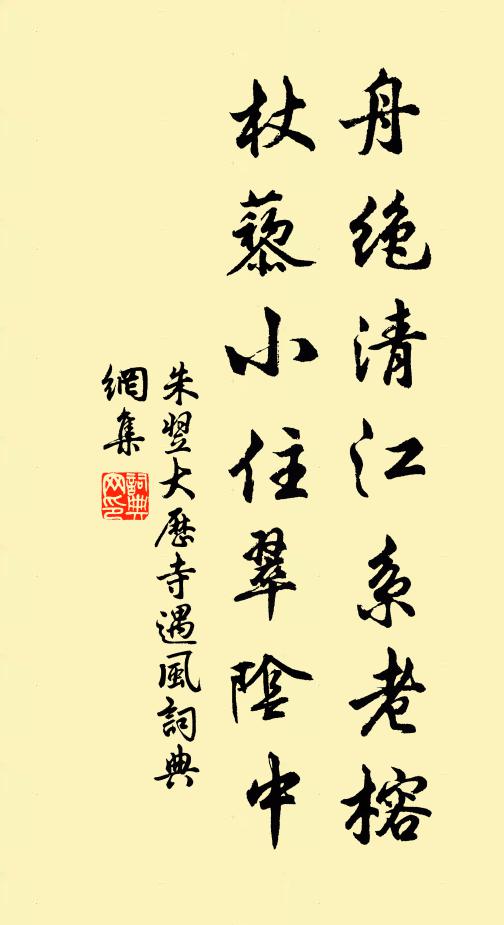 舟絶清江系老榕
杖藜小住翠陰中
朱翌大歷寺遇風詞典
網集
詞典
網印